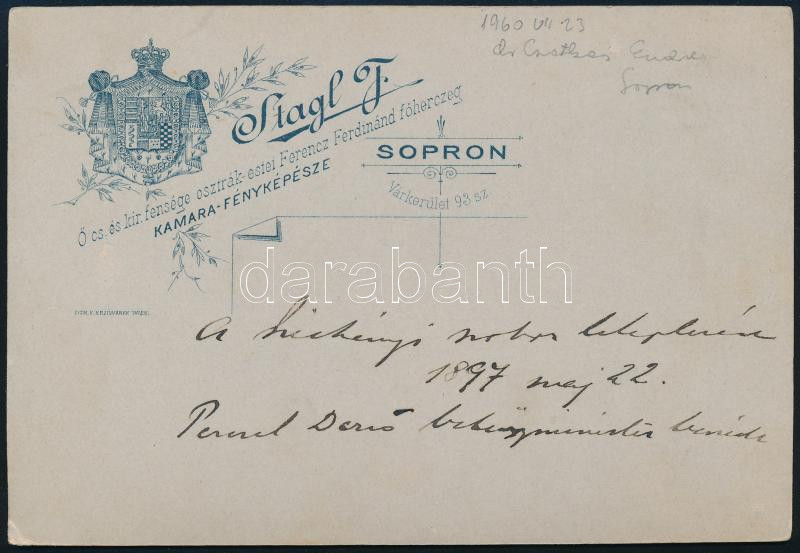 1960 VII 23
dr Csatkai Endre
Sopron
Stagl F.
Ő cs. és kir. fensége osztrák-estei Ferencz Ferdinánd főherczeg
KAMARA-FÉNYKÉPÉSZE
SOPRON
Várkerület 93.sz.
LITH. K. KRZIWANEK WIEN.
darabanth
A Széchényi szobor leleplezése
1897 maj 22.
Perczel Dezső belügyminister beszéde